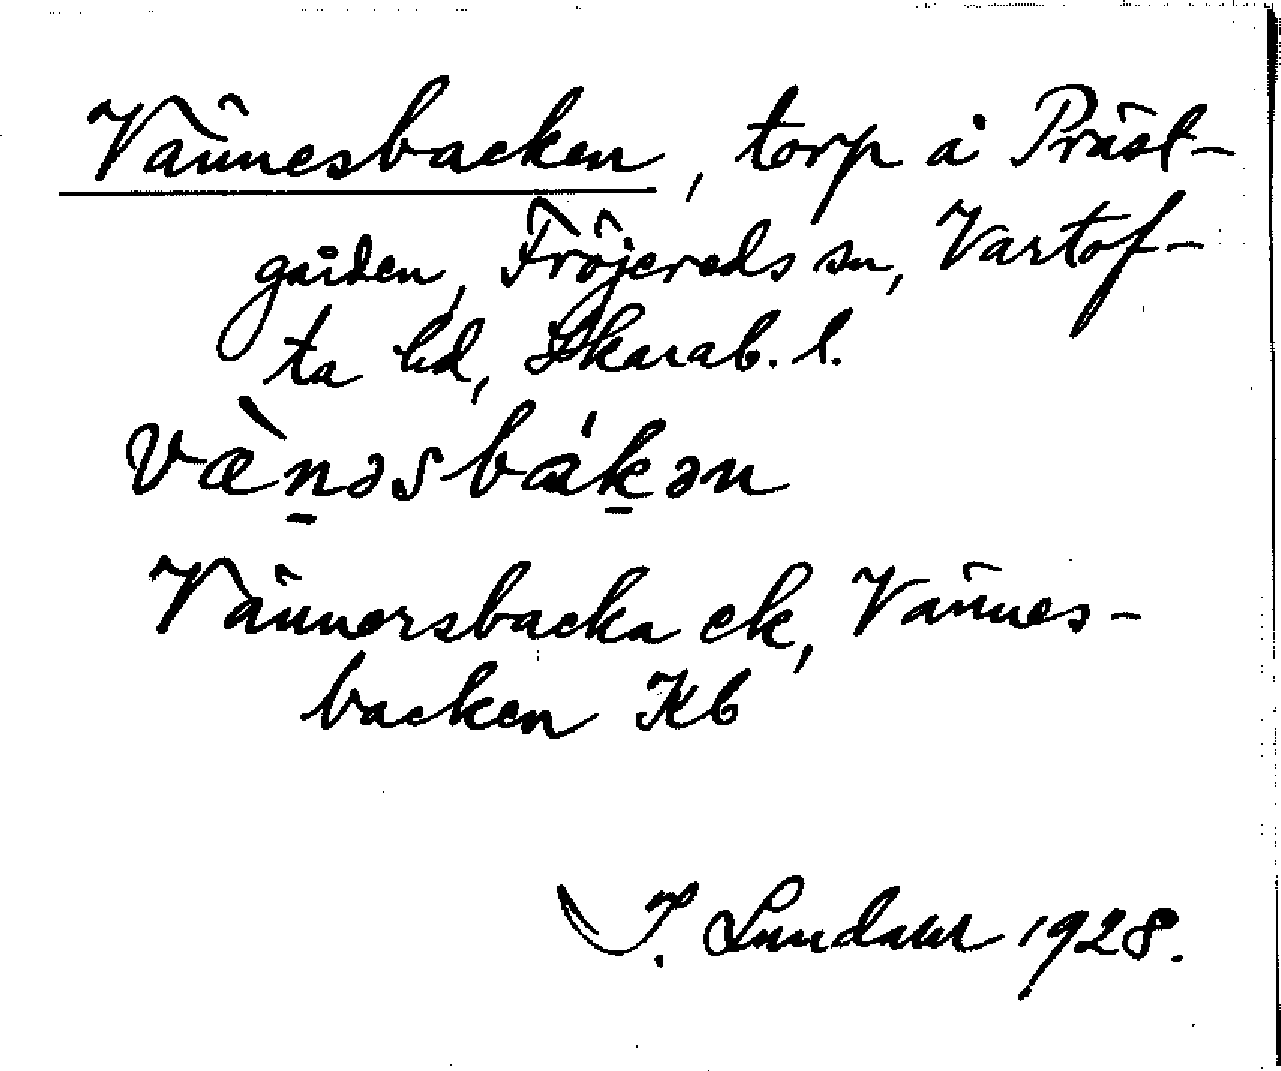 Vännesbacken, torp å Präst-
gården, Fröjereds sn, Vartof-
ta hd, Skarab. l.
væ̀n̠əsbák̠ən
Vännersbacka ek, Vännes-
backen Kb
I. Lundahl 1928.